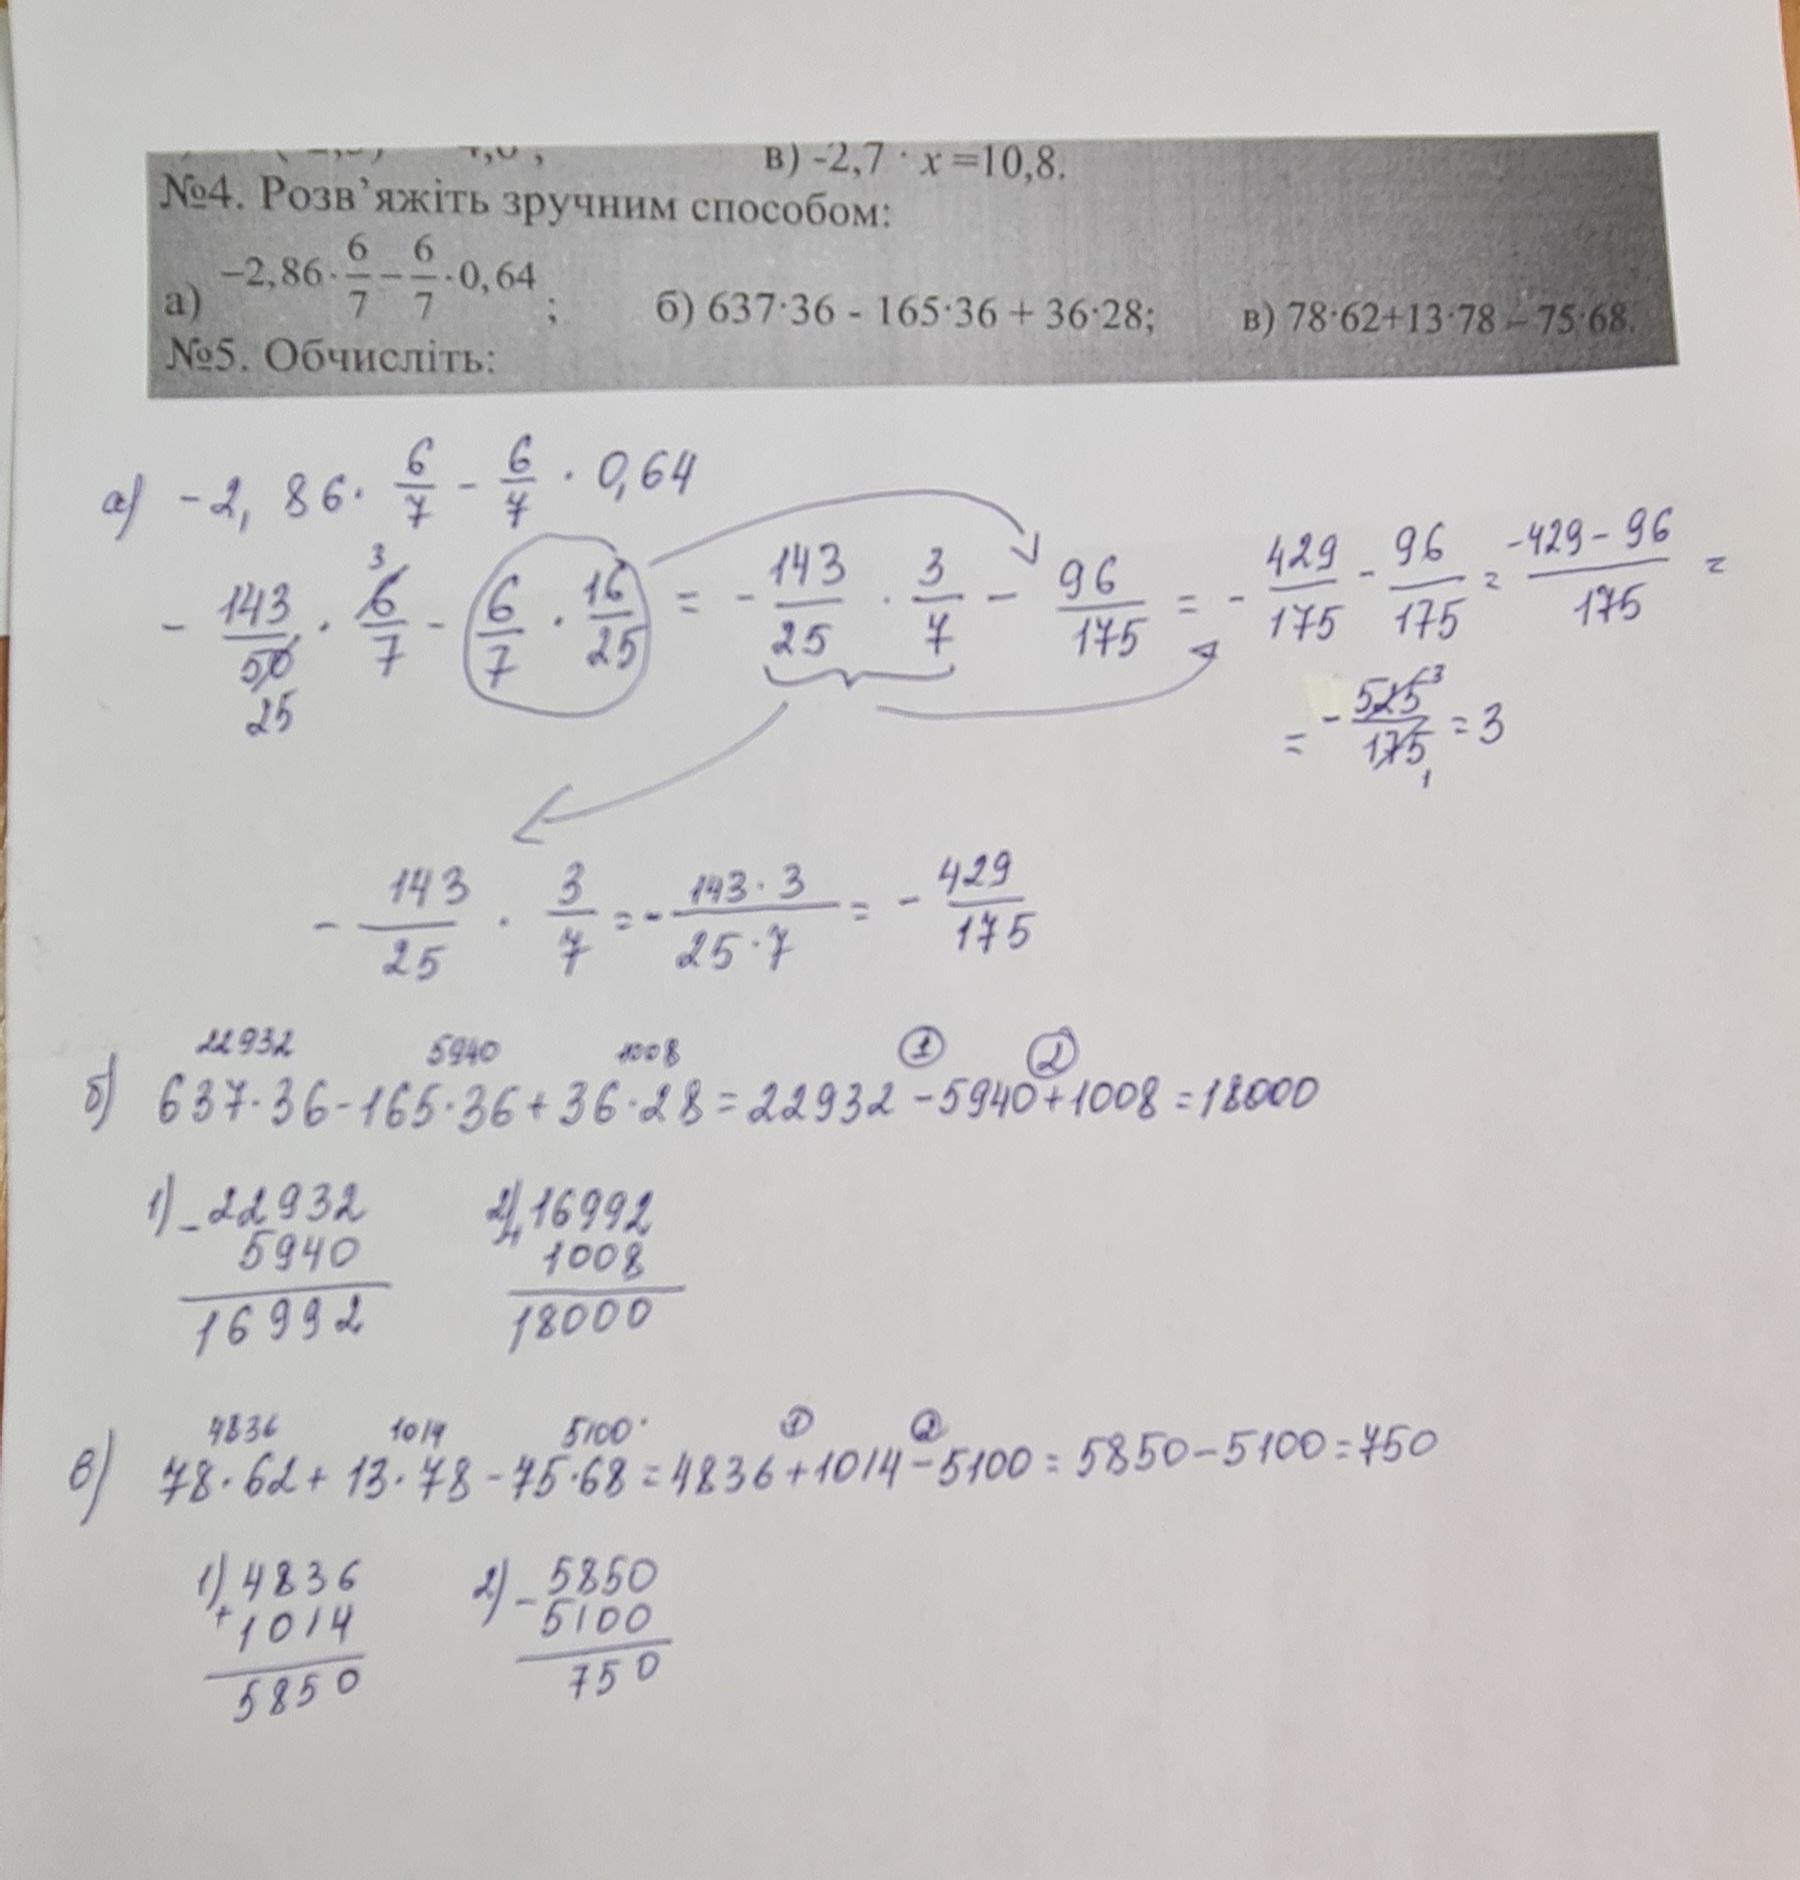 в) -2,7 · x =10,8.
№4. Розв’яжіть зручним способом:
а) −2,86·6/7−6/7·0,64; б) 637·36 - 165·36 + 36·28; в) 78·62+13·78 – 75·68.
№5. Обчисліть:
а) -2,86 · 6/7 - 6/7 · 0,64
- 143/50 · 6/7 - 6/7 · 16/25 = - 143/25 · 3/7 - 96/175 = - 429/175 - 96/175 = -429-96/175 =
3
25
= - 525/175 = 3
3
1
- 143/25 · 3/7 = - 143·3/25·7 = - 429/175
22932 5940 1008 1 2
б) 637·36-165·36+36·28=22932-5940+1008=18000
1) -22932 2) +16992
5940 1008
16992 18000
4836 1014 5100 1 2
в) 78·62+13·78-75·68=4836+1014-5100=5850-5100=750
1) 4836 2) - 5850
+ 1014 5100
5850 750